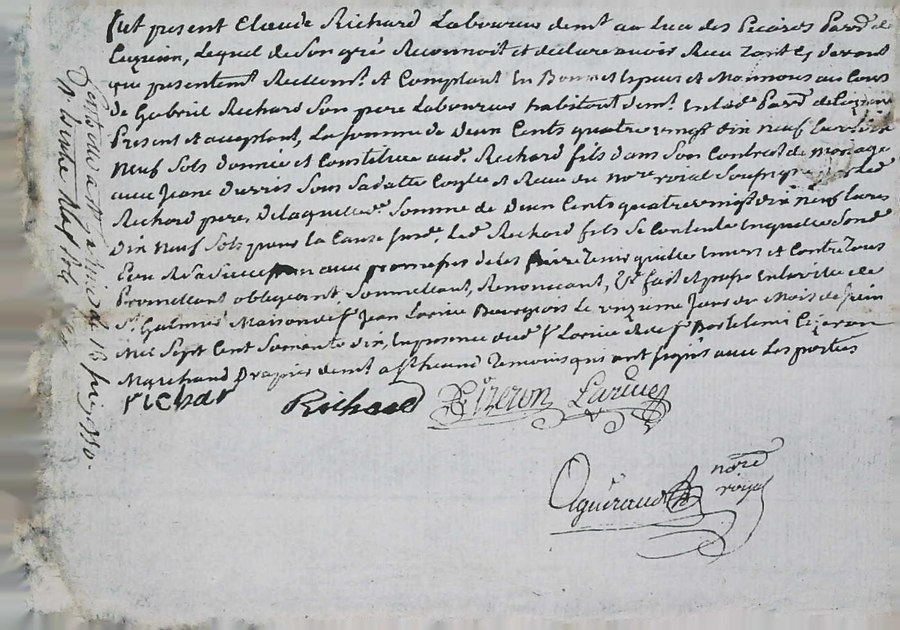 fut present Claude Richard Laboureur demt au lieu des Parr de
Cuzieu, Lequel de son gré Reconnoit et declare avoir Reçu tant cy devant
que presentemt Reellemt et Comptant En Bonnes Especes et Monnoies au Cours
de Gabriel Richard Son pere Laboureur habitant demt En lad. Parr de Cuzieu
Present et acceptant, La somme de Deux Cents quatre vingt dix neuf Livres dix
Neuf Sols donnée et Constituée aud. Richard fils dans Son Contrat de mariage
avec Jeanne Durris Sous Sa datte Coyté et Receu du Nore royal Soussigné Led.
Richard pere, De laquelle d. Somme de Deux Cents quatre vingt dix neuf Livres
dix neuf Sols pour la Cause susd. led. Richard fils Se Contente En quitte Sond.
Pere avec promesse de les faire tenir quitte Envers et Contre tous
Promettant obligeant, Soumettant, Renonçant, &c fait et passé En la ville de
St Galmier Maison de sr Jean Larive Bourgeois Le onzieme Jour du Mois de Juin
Mil Sept Cent Soixante dix, En presence dud. sr Larive et de sr Bartelemi Cizeron
Marchand Drapier demt a St heand Temoins qui ont signés avec Les parties
richar Richard Cizeron Larive
Agueraud nore
royal
13 juin 1770.